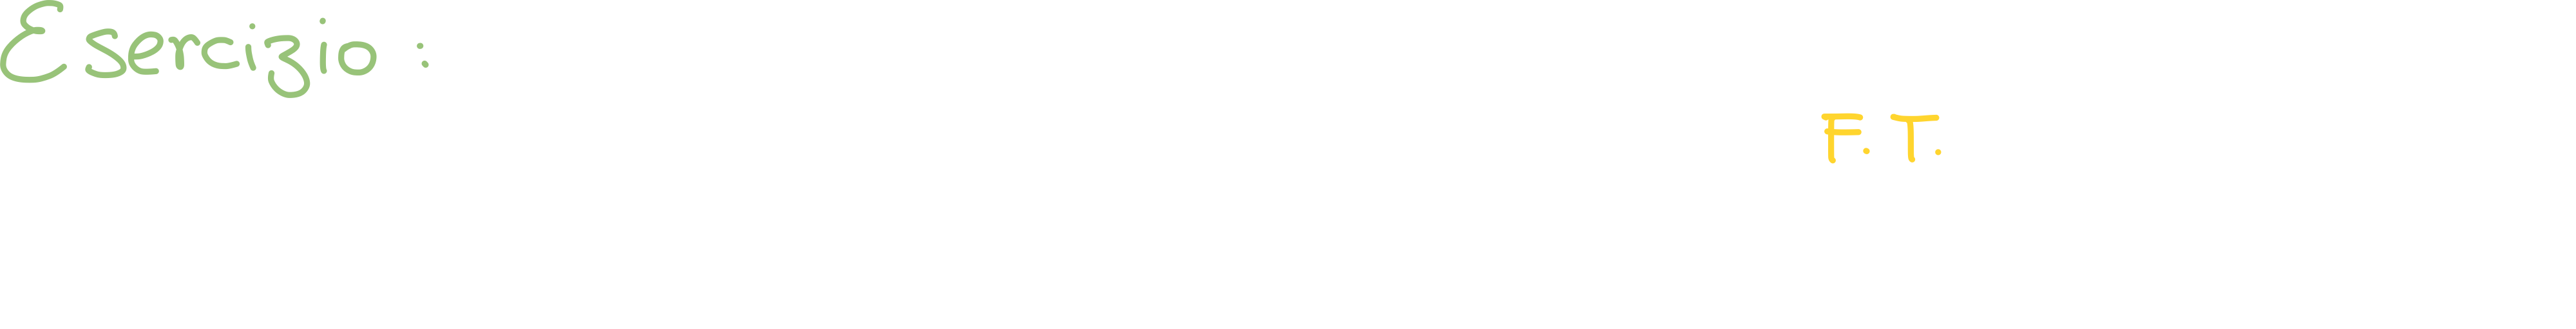 Esercizio :
F. T.